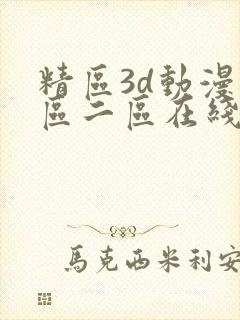 精區3d動漫
區二區在綫
馬克西米利安